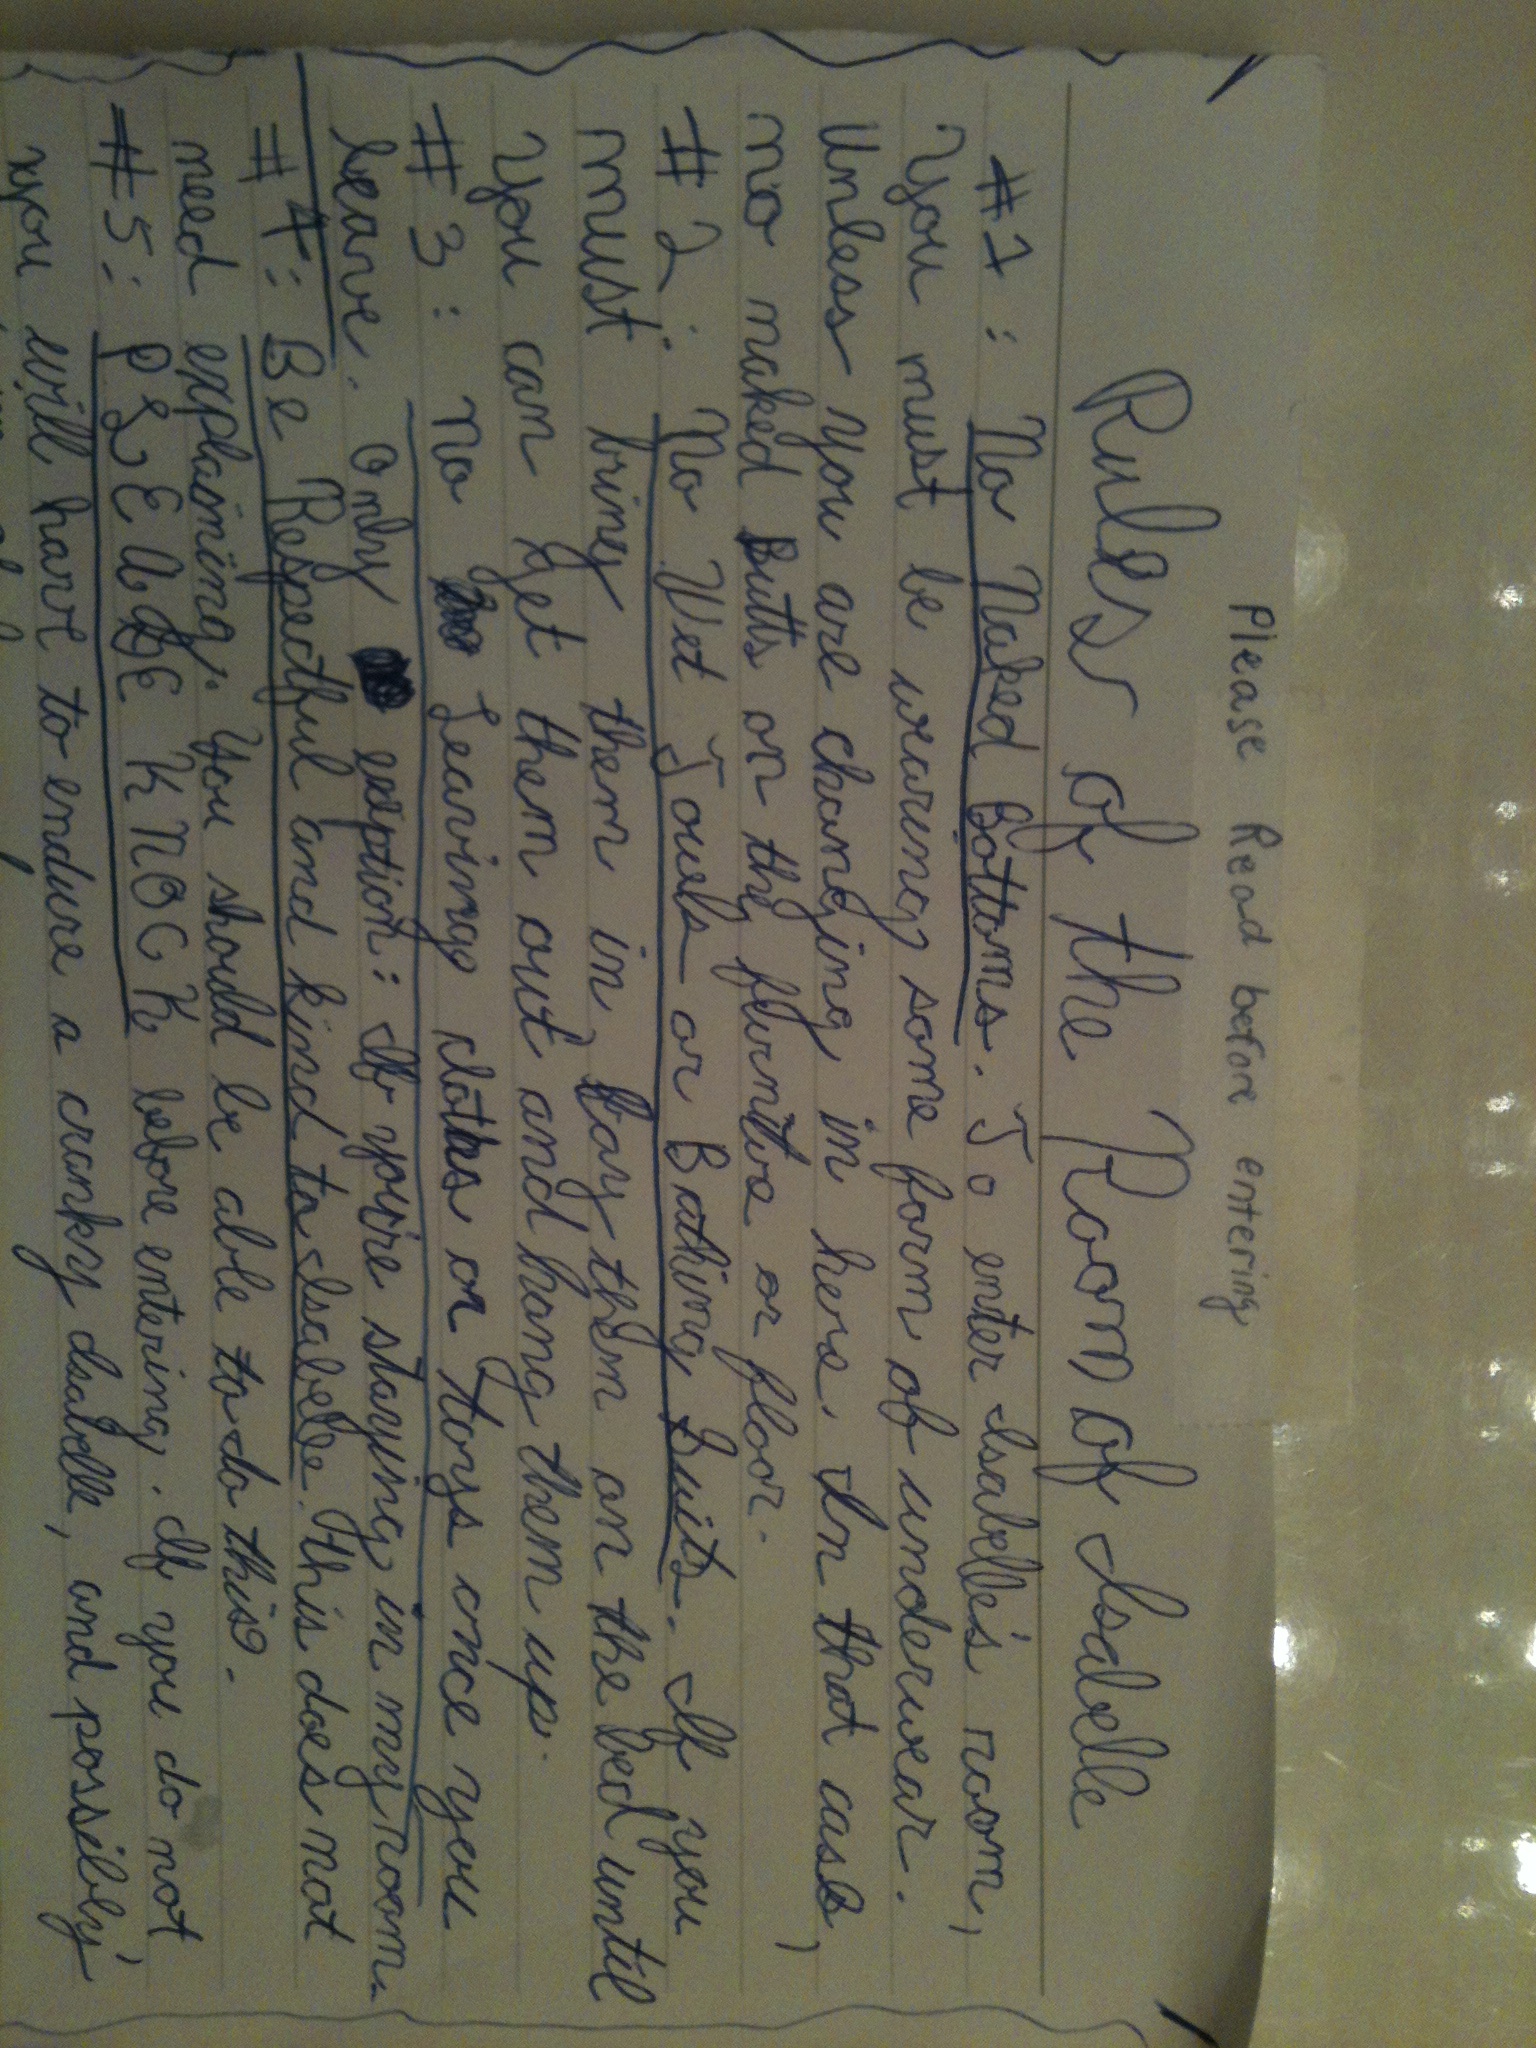 Please Read before entering
Rules of the Room of Isabelle
#1: No Naked Bottoms. To enter Isabelle's room,
You must be wearing some form of underwear.
Unless you are changing in here. In that case,
no naked Butts on the furnitve or floor.
#2: No Wet Towels or Bathing Suits. If you
must bring them in, lay them on the bed until
you can get them out and hang them up.
#3: No Leaving clothes or toys once you
leave. Only exeption: If you're staying in my room.
#4: Be Respectful and kind to Isabelle. This does not
need explaining. You should be able to do this.
#5: PLEASE KNOCK before entering. If you do not
you will have to endure a cranky Isabelle, and possibly